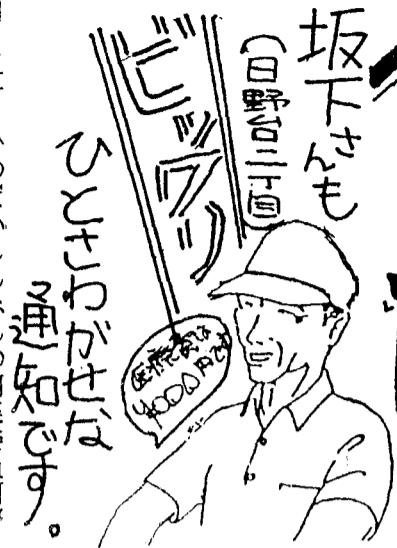 坂下さんも
(日野台二丁目)
ビックリ
ひとさわがせな
通知です。
医療費は
4000円です